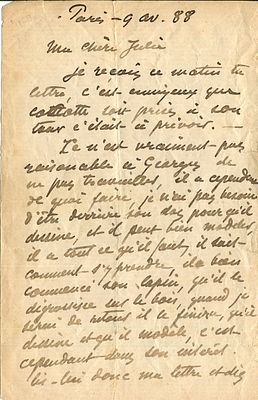 Paris - 9 av. 88
Ma chère Julie
je reçois ce matin ta
lettre, c'est ennuyeux que
cocotte soit prise à son
tour c'était à prévoir. —
Ce n'est vraiment pas
raisonable à Georges de
ne pas travailler, il a cependant
de quoi faire, je n'ai pas besoin
d'être derrière son dos pour qu'il
dessine, et il peut bien modeler,
il a tout ce qu'il faut, il sait
comment s'y prendre, il a bien
commencé son lapin, qu'il le
dégrossisse sur le bois, quand je
serai de retour il le finira, qu'il
dessine et qu'il modèle, c'est
cependant dans son intérêt.
lis-lui donc ma lettre et dis